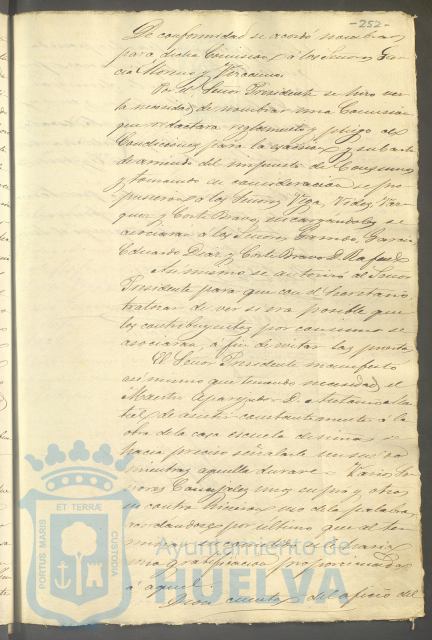 -252-
De conformidad se acordó nombrar
para dicha Comision á los Señores Gar-
cia Moreno y Vizcaino
Por el Señor Presidente se hizo ver
la necesidad de nombrar una Comision
que redactara reglamento y pliego de
Condiciones para la y subasta
de arriendo del impuesto de Consumos
y tomando en consideracion se pro-
pusieron á los Señores Vega, Vides, Vaz-
quez y Corte Bravo, encargandoles se
asociaran á los Señores Garrido, Garcia
Eduardo Diaz y Corte Bravo D. Rafael
Asimismo se autorizó al Señor
Presidente para que con el Secretario
trataran de ver si era posible que
los contribuyentes por consumo se
asociaran, á fin de evitar las puertas
El Señor Presidente manifestó
asi mismo que teniendo necesidad el
Maestro Aparejador D. Antonio
de asistir constantemente á la
obra de la casa escuela de niñas se
hacia preciso señalarle un sueldo
mientras aquella durase - Varios Se-
ñores Concejales unos en pro y otros
en contra hicieron uso de la palabra,
acordandose por último que al ter-
minar se concediera
una gratificacion proporcionada
á aquel
Dióse cuenta del oficio del
ET TERRÆ
PORTUS MARIS
CUSTODIA
Ayuntamiento de
HUELVA